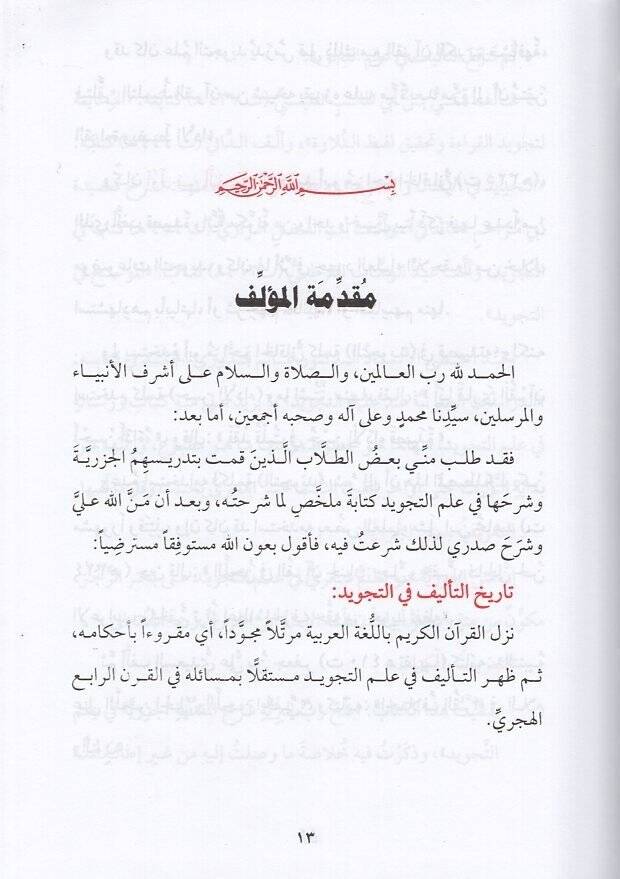 بِسْمِ اللَّهِ الرَّحْمَٰنِ الرَّحِيمِ
مُقدِّمَة المؤلِّف
الحمد لله رب العالمين، والصلاة والسلام على أشرف الأنبياء
والمرسلين، سيِّدنا محمدٍ وعلى آله وصحبه أجمعين، أما بعد:
فقد طلب منّي بعضُ الطلَّاب الَّذينَ قمت بتدريسهِمُ الجزريَّةَ
وشرحَها في علم التجويد كتابةَ ملخَّصٍ لما شرحتُه، وبعد أن مَنَّ الله عليَّ
وشرَحَ صدري لذلك شرعتُ فيه، فأقول بعون الله مستوفِقاً مسترضِياً:
تاريخ التأليف في التجويد:
نزل القرآن الكريم باللُّغة العربية مرتَّلاً مجوَّداً، أي مقروءاً بأحكامه،
ثم ظهر التأليف في علم التجويد مستقلًّا بمسائله في القرن الرابع
الهجريِّ.
١٣